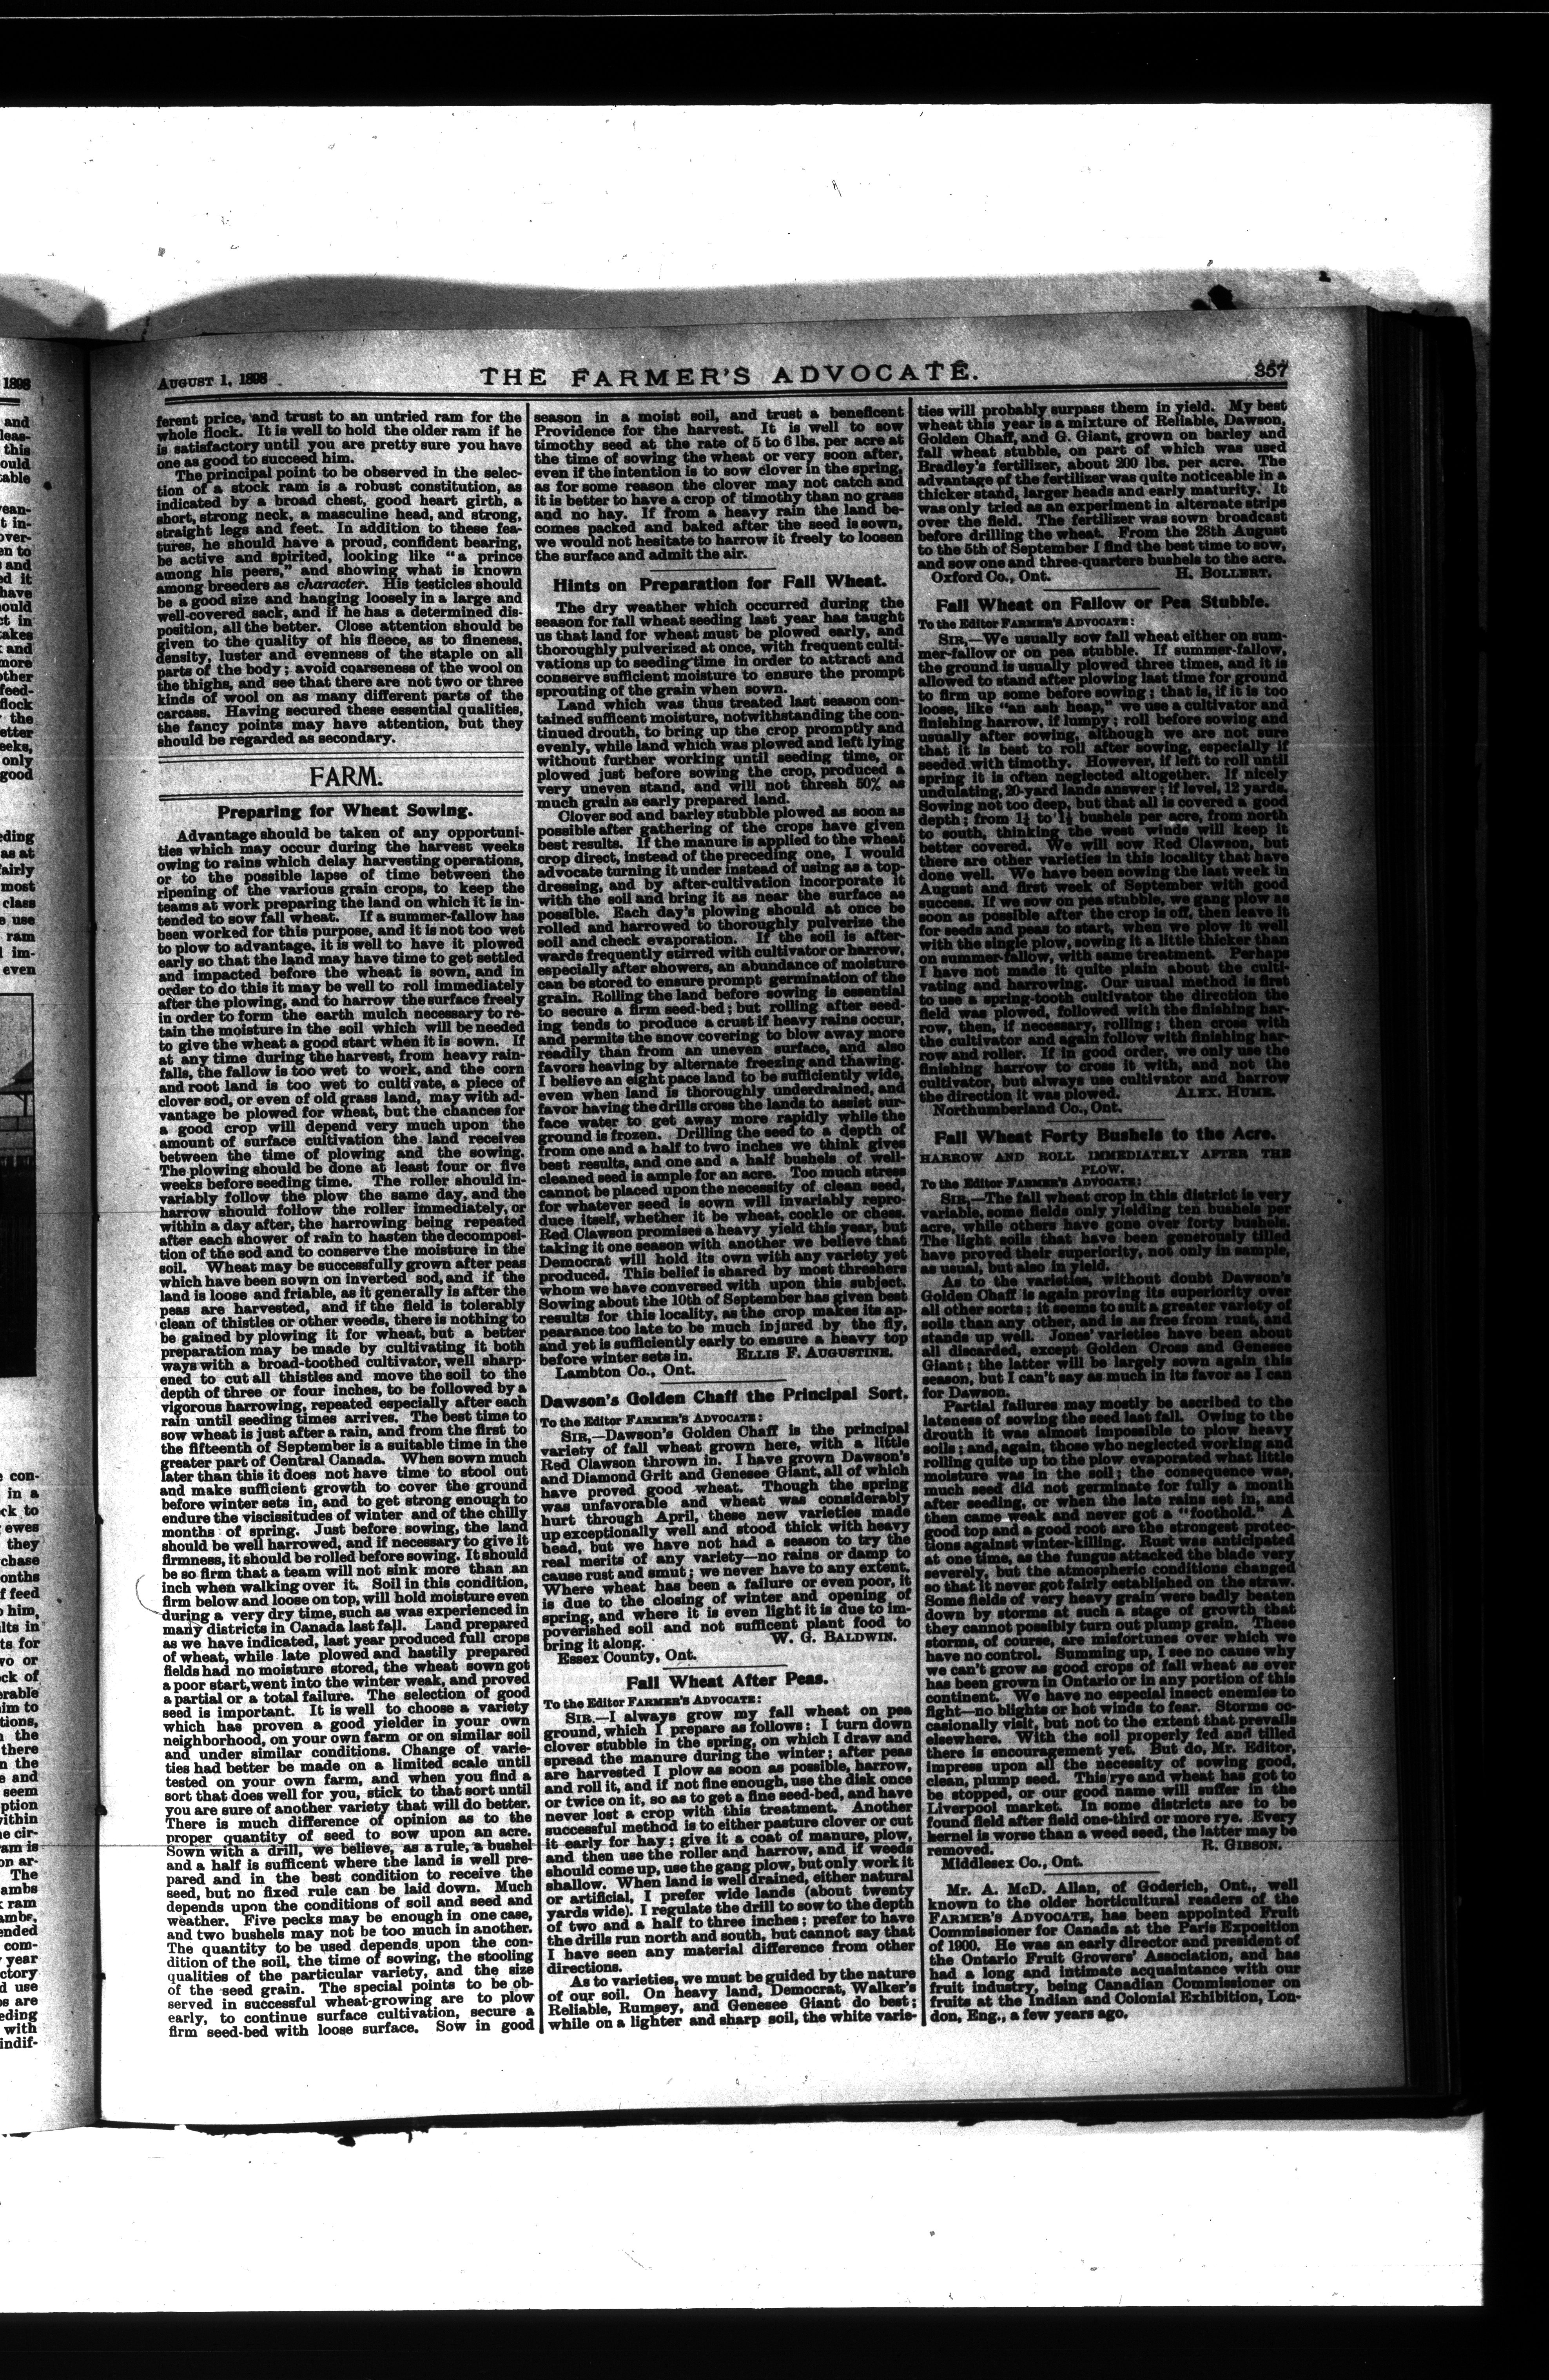 AUGUST 1, 1898
THE FARMER'S ADVOCATE.
357
ferent price, and trust to an untried ram for the
whole flock. It is well to hold the older ram if he
is satisfactory until you are pretty sure you have
one as good to succeed him.
The principal point to be observed in the selec-
tion of a stock ram is a robust constitution, as
indicated by a broad chest, good heart girth, a
short, strong neck, a masculine head, and strong,
straight legs and feet. In addition to these fea-
tures, he should have a proud, confident bearing,
be active and spirited, looking like "a prince
among his peers," and showing what is known
among breeders as character. His testicles should
be a good size and hanging loosely in a large and
well-covered sack, and if he has a determined dis-
position, all the better. Close attention should be
given to the quality of his fleece, as to fineness,
density, luster and evenness of the staple on all
parts of the body; avoid coarseness of the wool on
the thighs, and see that there are not two or three
kinds of wool on as many different parts of the
carcass. Having secured these essential qualities,
the fancy points may have attention, but they
should be regarded as secondary.
FARM.
Preparing for Wheat Sowing.
Advantage should be taken of any opportuni-
ties which may occur during the harvest weeks
owing to rains which delay harvesting operations,
or to the possible lapse of time between the
ripening of the various grain crops, to keep the
teams at work preparing the land on which it is in-
tended to sow fall wheat. If a summer-fallow has
been worked for this purpose, and it is not too wet
to plow to advantage, it is well to have it plowed
early so that the land may have time to get settled
and impacted before the wheat is sown, and in
order to do this it may be well to roll immediately
after the plowing, and to harrow the surface freely
in order to form the earth mulch necessary to re-
tain the moisture in the soil which will be needed
to give the wheat a good start when it is sown. If
at any time during the harvest, from heavy rain-
falls, the fallow is too wet to work, and the corn
and root land is too wet to cultivate, a piece of
clover sod, or even of old grass land, may with ad-
vantage be plowed for wheat, but the chances for
a good crop will depend very much upon the
amount of surface cultivation the land receives
between the time of plowing and the sowing.
The plowing should be done at least four or five
weeks before seeding time. The roller should in-
variably follow the plow the same day, and the
harrow should follow the roller immediately, or
within a day after, the harrowing being repeated
after each shower of rain to hasten the decomposi-
tion of the sod and to conserve the moisture in the
soil. Wheat may be successfully grown after peas
which have been sown on inverted sod, and if the
land is loose and friable, as it generally is after the
peas are harvested, and if the field is tolerably
clean of thistles or other weeds, there is nothing to
be gained by plowing it for wheat, but a better
preparation may be made by cultivating it both
ways with a broad-toothed cultivator, well sharp-
ened to cut all thistles and move the soil to the
depth of three or four inches, to be followed by a
vigorous harrowing, repeated especially after each
rain until seeding times arrives. The best time to
sow wheat is just after a rain, and from the first to
the fifteenth of September is a suitable time in the
greater part of Central Canada. When sown much
later than this it does not have time to stool out
and make sufficient growth to cover the ground
before winter sets in, and to get strong enough to
endure the viscissitudes of winter and of the chilly
months of spring. Just before sowing, the land
should be well harrowed, and if necessary to give it
firmness, it should be rolled before sowing. It should
be so firm that a team will not sink more than an
inch when walking over it. Soil in this condition,
firm below and loose on top, will hold moisture even
during a very dry time, such as was experienced in
many districts in Canada last fall. Land prepared
as we have indicated, last year produced full crops
of wheat, while late plowed and hastily prepared
fields had no moisture stored, the wheat sown got
a poor start, went into the winter weak, and proved
a partial or a total failure. The selection of good
seed is important. It is well to choose a variety
which has proven a good yielder in your own
neighborhood, on your own farm or on similar soil
and under similar conditions. Change of varie-
ties had better be made on a limited scale until
tested on your own farm, and when you find a
sort that does well for you, stick to that sort until
you are sure of another variety that will do better.
There is much difference of opinion as to the
proper quantity of seed to sow upon an acre.
Sown with a drill, we believe, as a rule, a bushel
and a half is sufficent where the land is well pre-
pared and in the best condition to receive the
seed, but no fixed rule can be laid down. Much
depends upon the conditions of soil and seed and
weather. Five pecks may be enough in one case,
and two bushels may not be too much in another.
The quantity to be used depends upon the con-
dition of the soil, the time of sowing, the stooling
qualities of the particular variety, and the size
of the seed grain. The special points to be ob-
served in successful wheat-growing are to plow
early, to continue surface cultivation, secure a
firm seed-bed with loose surface. Sow in good
season in a moist soil, and trust a beneficent
Providence for the harvest. It is well to sow
timothy seed at the rate of 5 to 6 lbs. per acre at
the time of sowing the wheat or very soon after,
even if the intention is to sow clover in the spring,
as for some reason the clover may not catch and
it is better to have a crop of timothy than no grass
and no hay. If from a heavy rain the land be-
comes packed and baked after the seed is sown,
we would not hesitate to harrow it freely to loosen
the surface and admit the air.
Hints on Preparation for Fall Wheat.
The dry weather which occurred during the
season for fall wheat seeding last year has taught
us that land for wheat must be plowed early, and
thoroughly pulverized at once, with frequent culti-
vations up to seeding time in order to attract and
conserve sufficient moisture to ensure the prompt
sprouting of the grain when sown.
Land which was thus treated last season con-
tained sufficent moisture, notwithstanding the con-
tinued drouth, to bring up the crop promptly and
evenly, while land which was plowed and left lying
without further working until seeding time, or
plowed just before sowing the crop, produced a
very uneven stand, and will not thresh 50% as
much grain as early prepared land.
Clover sod and barley stubble plowed as soon as
possible after gathering of the crops have given
best results. If the manure is applied to the wheat
crop direct, instead of the preceding one, I would
advocate turning it under instead of using as a top-
dressing, and by after-cultivation incorporate it
with the soil and bring it as near the surface as
possible. Each day's plowing should at once be
rolled and harrowed to thoroughly pulverize the
soil and check evaporation. If the soil is after-
wards frequently stirred with cultivator or harrow,
especially after showers, an abundance of moisture
can be stored to ensure prompt germination of the
grain. Rolling the land before sowing is essential
to secure a firm seed-bed; but rolling after seed-
ing tends to produce a crust if heavy rains occur,
and permits the snow covering to blow away more
readily than from an uneven surface, and also
favors heaving by alternate freezing and thawing.
I believe an eight pace land to be sufficiently wide,
even when land is thoroughly underdrained, and
favor having the drills cross the lands to assist sur-
face water to get away more rapidly while the
ground is frozen. Drilling the seed to a depth of
from one and a half to two inches we think gives
best results, and one and a half bushels of well-
cleaned seed is ample for an acre. Too much stress
cannot be placed upon the necessity of clean seed,
for whatever seed is sown will invariably repro-
duce itself, whether it be wheat, cockle or chess.
Red Clawson promises a heavy yield this year, but
taking it one season with another we believe that
Democrat will hold its own with any variety yet
produced. This belief is shared by most threshers
whom we have conversed with upon this subject.
Sowing about the 10th of September has given best
results for this locality, as the crop makes its ap-
pearance too late to be much injured by the fly,
and yet is sufficiently early to ensure a heavy top
before winter sets in. ELLIS F. AUGUSTINE.
Lambton Co., Ont.
Dawson's Golden Chaff the Principal Sort.
To the Editor FARMER'S ADVOCATE:
SIR,—Dawson's Golden Chaff is the principal
variety of fall wheat grown here, with a little
Red Clawson thrown in. I have grown Dawson's
and Diamond Grit and Genesee Giant, all of which
have proved good wheat. Though the spring
was unfavorable and wheat was considerably
hurt through April, these new varieties made
up exceptionally well and stood thick with heavy
head, but we have not had a season to try the
real merits of any variety—no rains or damp to
cause rust and smut; we never have to any extent.
Where wheat has been a failure or even poor, it
is due to the closing of winter and opening of
spring, and where it is even light it is due to im-
poverished soil and not sufficent plant food to
bring it along. W. G. BALDWIN.
Essex County, Ont.
Fall Wheat After Peas.
To the Editor FARMER'S ADVOCATE:
SIR.—I always grow my fall wheat on pea
ground, which I prepare as follows: I turn down
clover stubble in the spring, on which I draw and
spread the manure during the winter; after peas
are harvested I plow as soon as possible, harrow,
and roll it, and if not fine enough, use the disk once
or twice on it, so as to get a fine seed-bed, and have
never lost a crop with this treatment. Another
successful method is to either pasture clover or cut
it early for hay; give it a coat of manure, plow,
and then use the roller and harrow, and if weeds
should come up, use the gang plow, but only work it
shallow. When land is well drained, either natural
or artificial, I prefer wide lands (about twenty
yards wide). I regulate the drill to sow to the depth
of two and a half to three inches; prefer to have
the drills run north and south, but cannot say that
I have seen any material difference from other
directions.
As to varieties, we must be guided by the nature
of our soil. On heavy land, Democrat, Walker's
Reliable, Rumsey, and Genesee Giant do best;
while on a lighter and sharp soil, the white varie-
ties will probably surpass them in yield. My best
wheat this year is a mixture of Reliable, Dawson,
Golden Chaff, and G. Giant, grown on barley and
fall wheat stubble, on part of which was used
Bradley's fertilizer, about 200 lbs. per acre. The
advantage of the fertilizer was quite noticeable in a
thicker stand, larger heads and early maturity. It
was only tried as an experiment in alternate strips
over the field. The fertilizer was sown broadcast
before drilling the wheat. From the 28th August
to the 5th of September I find the best time to sow,
and sow one and three-quarters bushels to the acre.
Oxford Co., Ont. H. BOLLERT.
Fall Wheat on Fallow or Pea Stubble.
To the Editor FARMER'S ADVOCATE:
SIR,—We usually sow fall wheat either on sum-
mer-fallow or on pea stubble. If summer-fallow,
the ground is usually plowed three times, and it is
allowed to stand after plowing last time for ground
to firm up some before sowing; that is, if it is too
loose, like "an ash heap," we use a cultivator and
finishing harrow, if lumpy; roll before sowing and
usually after sowing, although we are not sure
that it is best to roll after sowing, especially if
seeded with timothy. However, if left to roll until
spring it is often neglected altogether. If nicely
undulating, 20-yard lands answer; if level, 12 yards.
Sowing not too deep, but that all is covered a good
depth; from 1¼ to 1½ bushels per acre, from north
to south, thinking the west winds will keep it
better covered. We will sow Red Clawson, but
there are other varieties in this locality that have
done well. We have been sowing the last week in
August and first week of September with good
success. If we sow on pea stubble, we gang plow as
soon as possible after the crop is off, then leave it
for seeds and peas to start, when we plow it well
with the single plow, sowing it a little thicker than
on summer-fallow, with same treatment. Perhaps
I have not made it quite plain about the culti-
vating and harrowing. Our usual method is first
to use a spring-tooth cultivator the direction the
field was plowed, followed with the finishing har-
row, then, if necessary, rolling; then cross with
the cultivator and again follow with finishing har-
row and roller. If in good order, we only use the
finishing harrow to cross it with, and not the
cultivator, but always use cultivator and harrow
the direction it was plowed. ALEX. HUME.
Northumberland Co., Ont.
Fall Wheat Forty Bushels to the Acre.
HARROW AND ROLL IMMEDIATELY AFTER THE
PLOW.
To the Editor FARMER'S ADVOCATE:
SIR,—The fall wheat crop in this district is very
variable, some fields only yielding ten bushels per
acre, while others have gone over forty bushels.
The light soils that have been generously tilled
have proved their superiority, not only in sample,
as usual, but also in yield.
As to the varieties, without doubt Dawson's
Golden Chaff is again proving its superiority over
all other sorts; it seems to suit a greater variety of
soils than any other, and is as free from rust, and
stands up well. Jones' varieties have been about
all discarded, except Golden Cross and Genesee
Giant; the latter will be largely sown again this
season, but I can't say as much in its favor as I can
for Dawson.
Partial failures may mostly be ascribed to the
lateness of sowing the seed last fall. Owing to the
drouth it was almost impossible to plow heavy
soils; and, again, those who neglected working and
rolling quite up to the plow evaporated what little
moisture was in the soil; the consequence was,
much seed did not germinate for fully a month
after seeding, or when the late rains set in, and
then came weak and never got a "foothold." A
good top and a good root are the strongest protec-
tions against winter-killing. Rust was anticipated
at one time, as the fungus attacked the blade very
severely, but the atmospheric conditions changed
so that it never got fairly established on the straw.
Some fields of very heavy grain were badly beaten
down by storms at such a stage of growth that
they cannot possibly turn out plump grain. These
storms, of course, are misfortunes over which we
have no control. Summing up, I see no cause why
we can't grow as good crops of fall wheat as ever
has been grown in Ontario or in any portion of this
continent. We have no especial insect enemies to
fight—no blights or hot winds to fear. Storms oc-
casionally visit, but not to the extent that prevails
elsewhere. With the soil properly fed and tilled
there is encouragement yet. But do, Mr. Editor,
impress upon all the necessity of sowing good,
clean, plump seed. This rye and wheat has got to
be stopped, or our good name will suffer in the
Liverpool market. In some districts are to be
found field after field one-third or more rye. Every
kernel is worse than a weed seed, the latter may be
removed. R. GIBSON.
Middlesex Co., Ont.
Mr. A. McD. Allan, of Goderich, Ont., well
known to the older horticultural readers of the
FARMER'S ADVOCATE, has been appointed Fruit
Commissioner for Canada at the Paris Exposition
of 1900. He was an early director and president of
the Ontario Fruit Growers' Association, and has
had a long and intimate acquaintance with our
fruit industry, being Canadian Commissioner on
fruits at the Indian and Colonial Exhibition, Lon-
don, Eng., a few years ago.